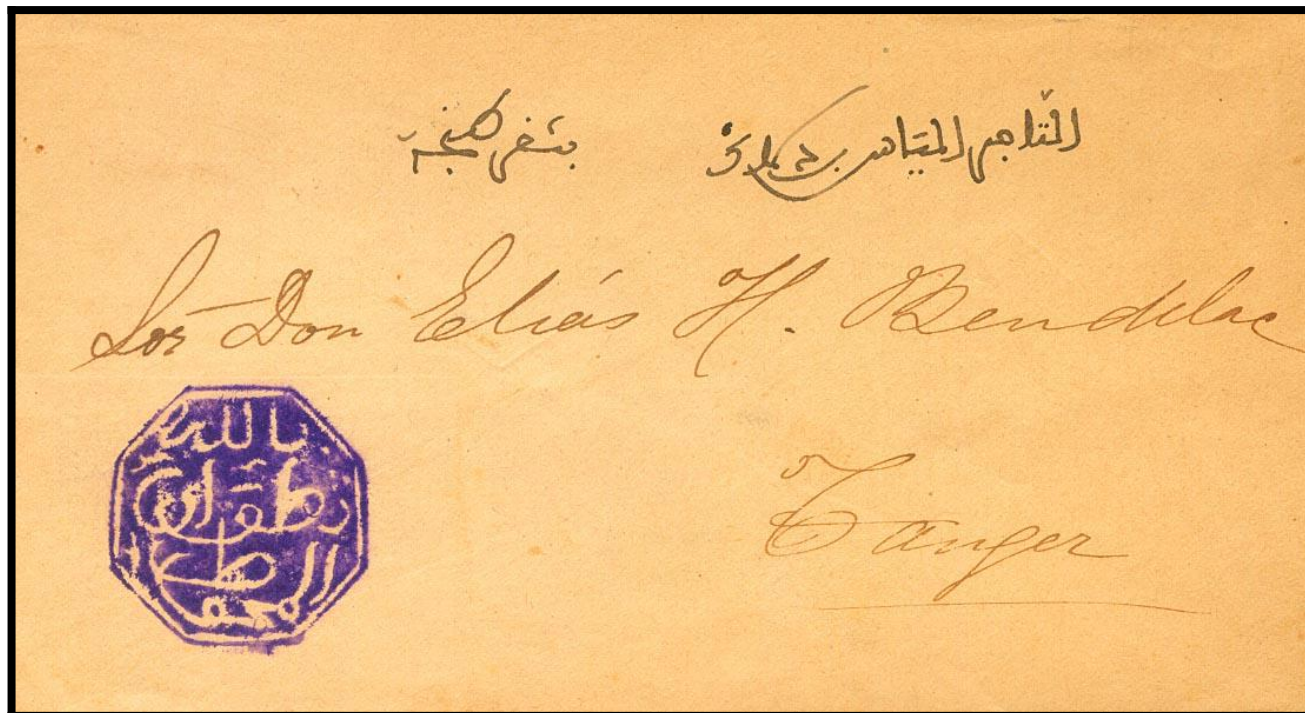 التاجر الياس بن دلاك بثغر طنجة
Sor Don Elías H. Bendelac
Tanger
بالله
تطوان